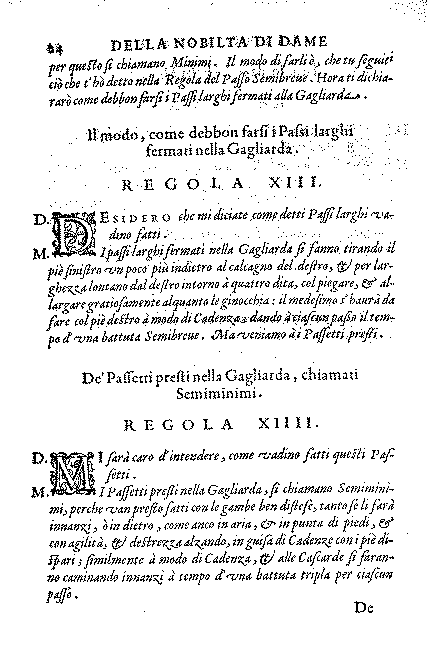 24 DELLA NOBILTA DI DAME
per questo si chiamano Minimi. Il modo di farli è, che tu seguiti
ciò che t'hò detto nella Regola del Passo Semibreue. Hora ti dichia-
rarò come debbon farsi i Passi larghi fermati alla Gagliarda.
Il modo, come debbon farsi i Passi larghi
fermati nella Gagliarda.
REGOLA XIII.
D. DESIDERO che mi diciate come detti Passi larghi va-
dino fatti.
M. I passi larghi fermati nella Gagliarda si fanno tirando il
piè sinistro vn poco più indietro al calcagno del destro, & per lar-
ghezza lontano dal destro intorno à quattro dita, col piegare, & al-
largare gratiosamente alquanto le ginocchia: il medesimo s'haurà da
fare col piè destro à modo di Cadenza dando à ciascun passo il tem-
po d'vna battuta Semibreue. Ma veniamo à i Passetti presti.
De' Passetti presti nella Gagliarda, chiamati
Semiminimi.
REGOLA XIIII.
D. MI sarà caro d'intendere, come vadino fatti questi Pas-
setti.
M. I Passetti presti nella Gagliarda, si chiamano Semimini-
mi, perche van presto fatti con le gambe ben distese, tanto se li farà
innanzi, ò in dietro, come anco in aria, & in punta di piedi, &
con agilità, & destrezza alzando, in guisa di Cadenze con i piè di-
spari; similmente à modo di Cadenza, & alle Cascarde si faran-
no caminando innanzi à tempo d'vna battuta tripla per ciascun
passo.
De